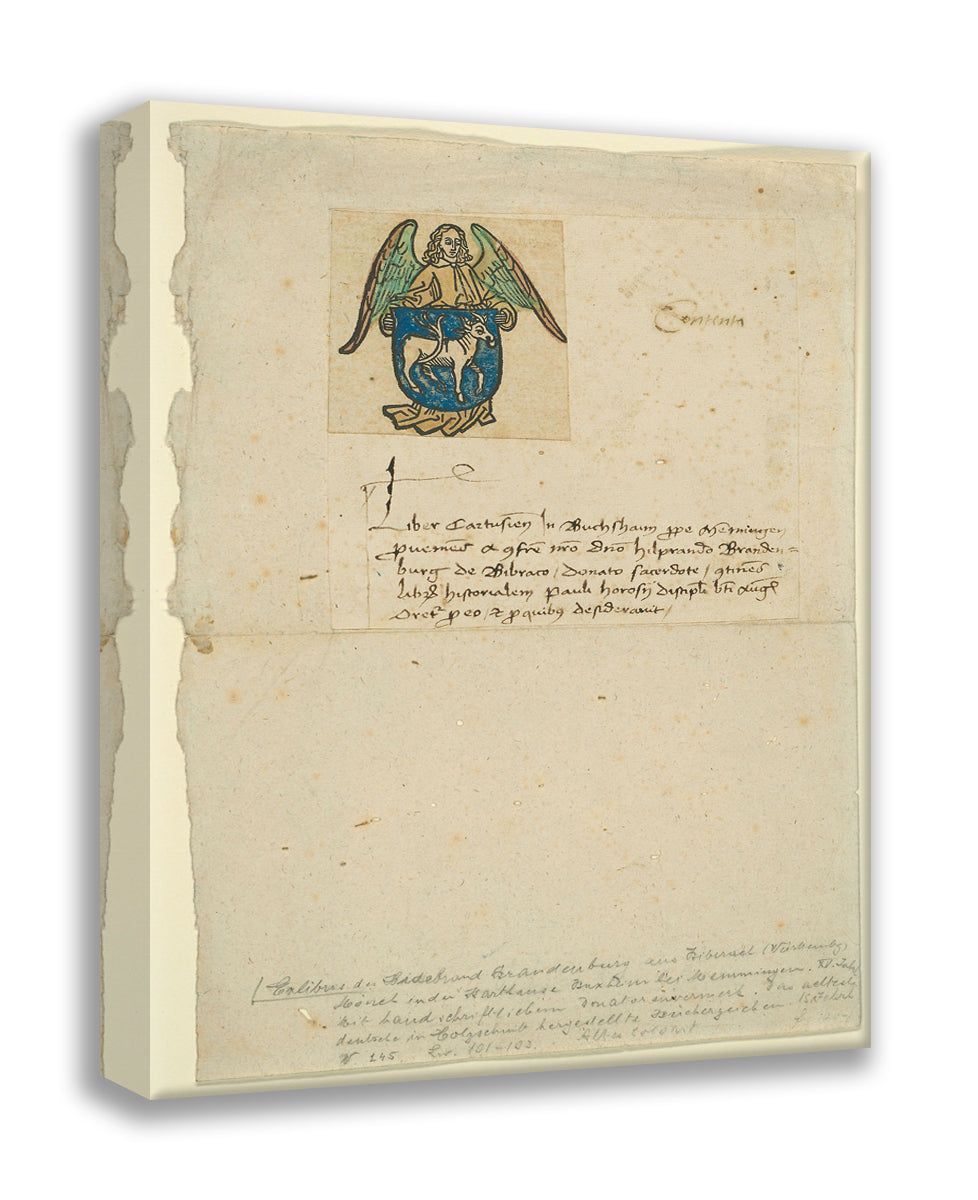 Contenta
Liber Cartusien̄ In Buchshaim ꝓpe Mēmingen
ꝓueniēs a ꝯfrē nr̄o Dn̄o hilprando Branden=
burg de Bibraco / Donato sacerdote / ꝯtinēs
libꝝ historialem pauli horosij discipl̄i bt̄i Auḡ
Oret~ ꝓ eo / et ꝓ quibꝰ desiderauit /
Exlibris des Hildebrand Brandenburg aus Biberach (Württembg)
Mönch in der Karthause Buxheim bei Memmingen. XV. Jahrh
Mit handschriftlichem Donatorenvermerk. Das aelteste
deutsche in Holzschnitt hergestellte Bücherzeichen.
W. 245. 101-103. Altes Colorit